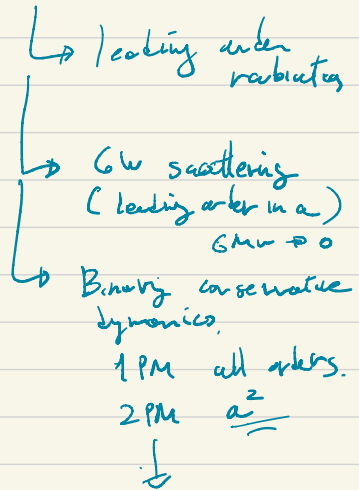 ↳ leading order
radiation
↳ GW scattering
(leading order in a)
GMw → 0
↳ Binary conservative
dynamics.
1PM all orders.
2PM a²
↓